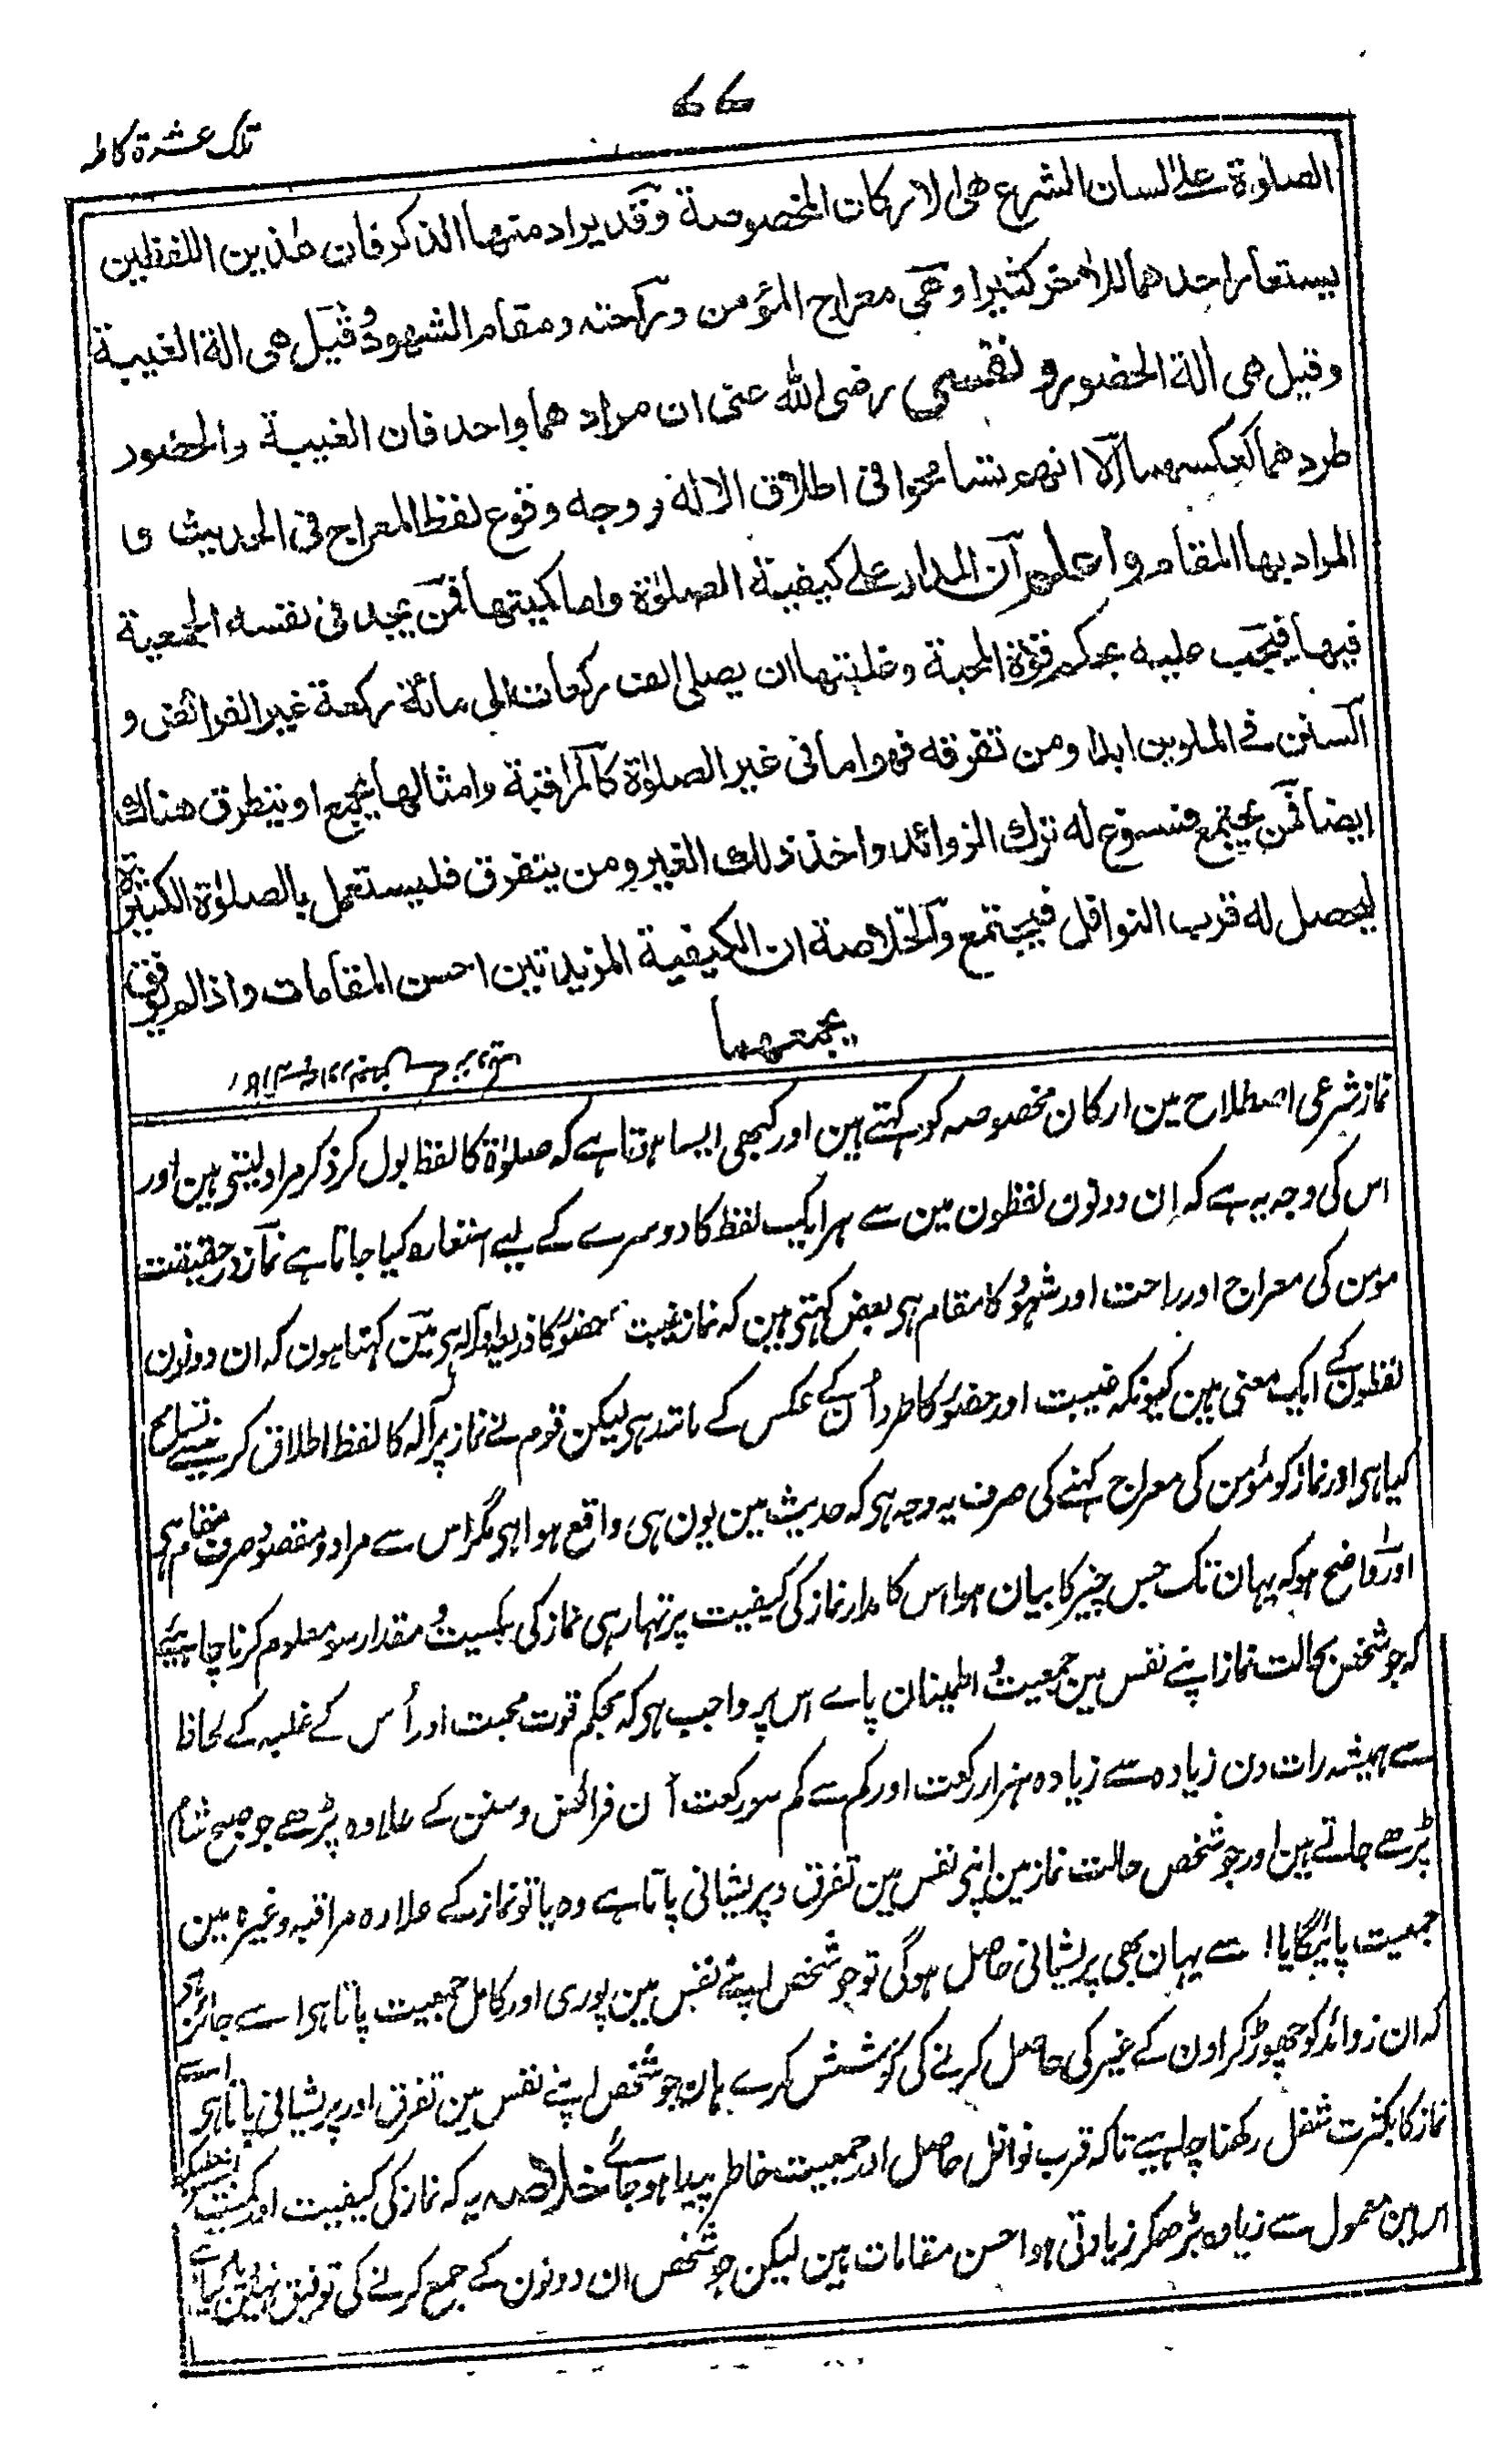 ۷۷
تلک عشرۃ کاملہ
الصلوٰة علے لسان الشرع هی الارکان المخصوصة وقد یراد منها الذکر فان هٰذین اللفظین
یستعار احدهما للاٰخر کثیرا وهی معراج المؤمن وراحته ومقام الشهود وقیل هی الة الغیبة
وقیل هی الة الحضور و نفسی رضی الله عنی ان مرادهما واحد فان الغیبة والحضور
طردهما کعکسهما الا انهم تسامحوا فی اطلاق الالة ووجه وقوع لفظ المعراج فی الحدیث
المراد بها المقام واعلم ان المدار علی کیفیة الصلوٰة واما کمیتها فمن یجد فی نفسه الجمعیة
فیها فیجب علیه بحکم قوة المحبة وغلبتها ان یصلی الف رکعات الی مائة رکعة غیر الفرائض و
السنن فے الملوین ابدا ومن تفرقه فهو اما فی غیر الصلوٰة کالمراقبة وامثالها یجمع او یتطرق هناك
ایضا فمن یجتمع فیسوغ له ترك الزوائد واخذ ذلك الغیر ومن یتفرق فلیستعمل بالصلوٰة الکثیرة
لیحصل له قرب النوافل فیجتمع والخلاصة ان الکیفیة المزیدتین احسن المقامات واذا لم یوفق
بجمعهما
نماز شرعی اصطلاح مین ارکان مخصوصہ کو کہتے ہین اور کبھی ایسا ہوتا ہے کہ صلوٰۃ کا لفظ بول کر ذکر مراد لیتی ہین اور
اس کی وجہ یہ ہے کہ اِن دونون لفظون مین سے ہر ایک لفظ کا دوسرے کے لیے استعارہ کیا جاتا ہے نماز درحقیقت
مومن کی معراج اور راحت اور شہود کا مقام ہی بعض کہتی ہین کہ نماز غیبت حضور کا ذریعہ اور آلہ ہی مین کہتا ہون کہ ان دونون
لفظون کے ایک معنی ہین کیونکہ غیبت اور حضور کا طرد اُن کے عکس کے مانند ہی لیکن قوم نے نماز پر آلہ کا لفظ اطلاق کرنے مین تسامح
کیا ہی اور نماز کو مؤمن کی معراج کہنے کی صرف یہ وجہ ہی کہ حدیث مین یون ہی واقع ہوا ہی مگر اس سے مراد و مقصود صرف مقام ہی
اور واضح ہو کہ یہان تک جس چیز کا بیان ہوا اس کا مدار نماز کی کیفیت پر تہا رہی نماز کی کمیت و مقدار سو معلوم کرنا چاہیئے
کہ جو شخص بحالت نماز اپنے نفس مین جمعیت و اطمینان پاے اس پر واجب ہی کہ بحکم قوت محبت اور اُس کے غلبہ کے لحاظ
سے ہمیشہ رات دن زیادہ سے زیادہ ہزار رکعت اور کم سے کم سو رکعت اُن فرائض و سنن کے علاوہ پڑھے جو صبح شام
پڑھے جاتے ہین اور جو شخص حالت نماز مین اپنی نفس مین تفرق و پریشانی پاتا ہے وہ یا تو نماز کے علاوہ مراقبہ وغیرہ مین
جمعیت پائیگا یا اسے یہان بھی پریشانی حاصل ہوگی تو جو شخص اپنے نفس مین پوری اور کامل جمعیت پاتا ہی اسے جائز ہی
کہ ان زوائد کو چھوڑ کر اون کے غیر کی حاصل کرنے کی کوشش کرے ہان جو شخص اپنے نفس مین تفرق اور پریشانی پاتا ہی اسے
نماز کا بکثرت شغل رکھنا چاہیے تاکہ قرب نوافل حاصل اور جمعیت خاطر پیدا ہو جائے خلاصہ یہ کہ نماز کی کیفیت اور کمیت
اس مین معمول سے زیادہ بڑھکر زیادتی ہو احسن مقامات ہین لیکن جو شخص ان دونون کے جمع کرنے کی توفیق نہین دیا گیا